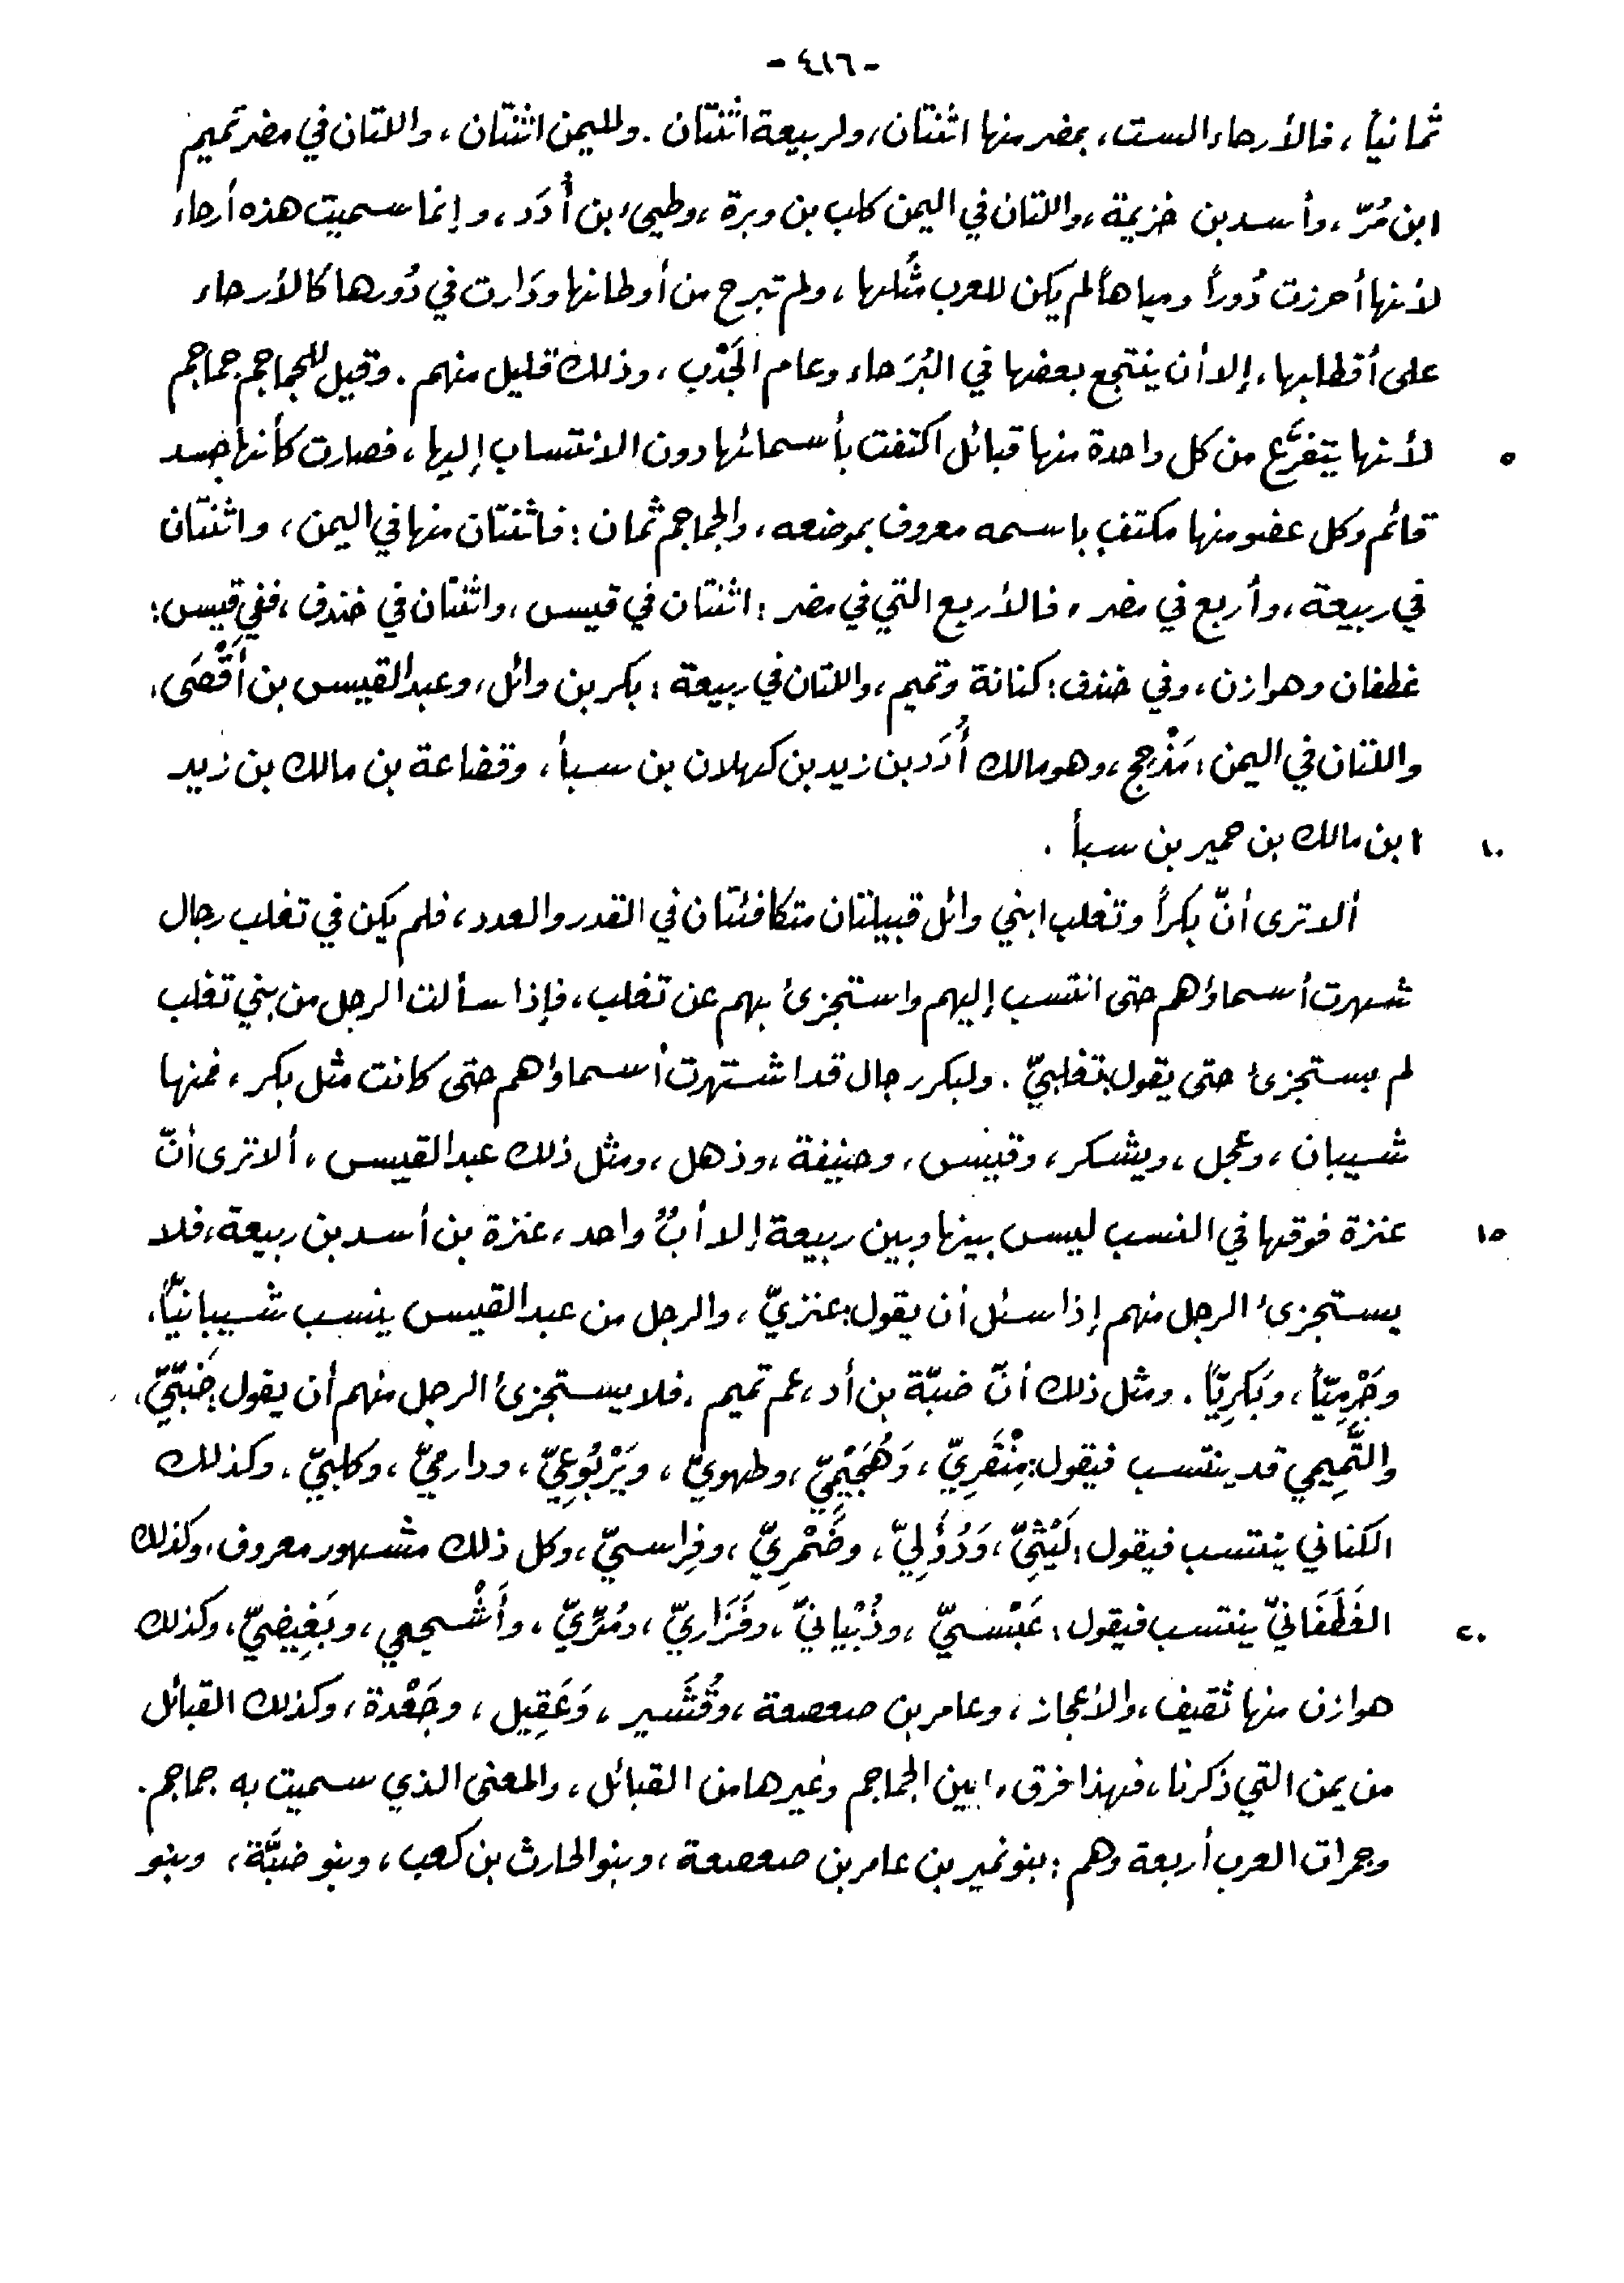 - ٤١٦ -
ثمانياً ، فالأرحاء الست ، بمضر منها اثنتان ، ولربيعة اثنتان . ولليمن اثنتان ، واللتان في مضر تميم
ابن مُرّ ، وأسد بن خزيمة ، واللتان في اليمن كلب بن وبرة ، وطيىء بن أُدَد ، وإنما سميت هذه أرحاء
لأنها أحرزت دُوراً ومياهاً لم يكن للعرب مثلها ، ولم تبرح من أوطانها ودَارت في دُورها كالأرحاء
على أقطابها ، إلا أن ينتجع بعضها في البُرَحاء وعام الجَدْب ، وذلك قليل منهم . وقيل للجماجم جماجم
٥ لأنها يتفرَّع من كل واحدة منها قبائل اكتفت بأسمائها دون الانتساب إليها ، فصارت كأنها جسد
قائم وكل عضو منها مكتفٍ باسمه معروف بموضعه ، والجماجم ثمان : فاثنتان منها في اليمن ، واثنتان
في ربيعة ، وأربع في مضر ، فالأربع التي في مضر : اثنتان في قيس ، واثنتان في خندف ، ففي قيس :
غطفان وهوازن ، وفي خندف : كنانة وتميم ، واللتان في ربيعة : بكر بن وائل ، وعبد القيس بن أَفْصَى ،
واللتان في اليمن : مَذْحِج ، وهو مالك أُدَد بن زيد بن كهلان بن سبأ ، وقضاعة بن مالك بن زيد
١٠ ابن مالك بن حمير بن سبأ .
ألا ترى أنّ بكراً وتغلب ابني وائل قبيلتان متكافئتان في القدر والعدد ، فلم يكن في تغلب رجال
شهرت أسماؤهم حتى انتسب إليهم واستجزئ بهم عن تغلب ، فإذا سألت الرجل من بني تغلب
لم يستجزئ حتى يقول : تغلبيّ . ولبكر رجال قد اشتهرت أسماؤهم حتى كانت مثل بكر ، فمنها
شيبان ، وعجل ، ويشكر ، وقيس ، وحنيفة ، وذهل ، ومثل ذلك عبد القيس ، ألا ترى أنّ
١٥ عنزة فوقها في النسب ليس بينها وبين ربيعة إلا أبٌ واحد ، عنزة بن أسد بن ربيعة ، فلا
يستجزئ الرجل منهم إذا سئل أن يقول : عنزيّ ، والرجل من عبد القيس ينسب شيبانيّاً ،
وجَرْمِيّاً ، وبَكرِيّاً . ومثل ذلك أنّ ضبّة بن أد ، عم تميم ، فلا يستجزئ الرجل منهم أن يقول : ضَبّيّ ،
والتَّمِيمي قد ينتسب فيقول : مِنْقَرِيّ ، وَهُجَيْمِيّ ، وطهويّ ، ويَرْبُوعِيّ ، ودارميّ ، وكلبيّ ، وكذلك
الكناني ينتسب فيقول : لَيْثِيّ ، وَدُؤَلِيّ ، وضَمْرِيّ ، وفِراسيّ ، وكل ذلك مشهور معروف ، وكذلك
٢٠ الغَطَفَانيّ ينتسب فيقول : عَبْسيّ ، وذُبْيانيّ ، وفَزَاريّ ، ومُرِّيّ ، وأَشْجعي ، وبَغِيضيّ ، وكذلك
هوازن منها ثقيف ، والأعجاز ، وعامر بن صعصعة ، وقُشَير ، وَعَقِيل ، وجَعْدة ، وكذلك القبائل
من يمن التي ذكرنا ، فهذا فرق ما بين الجماجم وغيرها من القبائل ، والمعنى الذي سميت به جماجم .
وجمرات العرب أربعة وهم : بنو نمير بن عامر بن صعصعة ، وبنو الحارث بن كعب ، وبنو ضبَّة ، وبنو